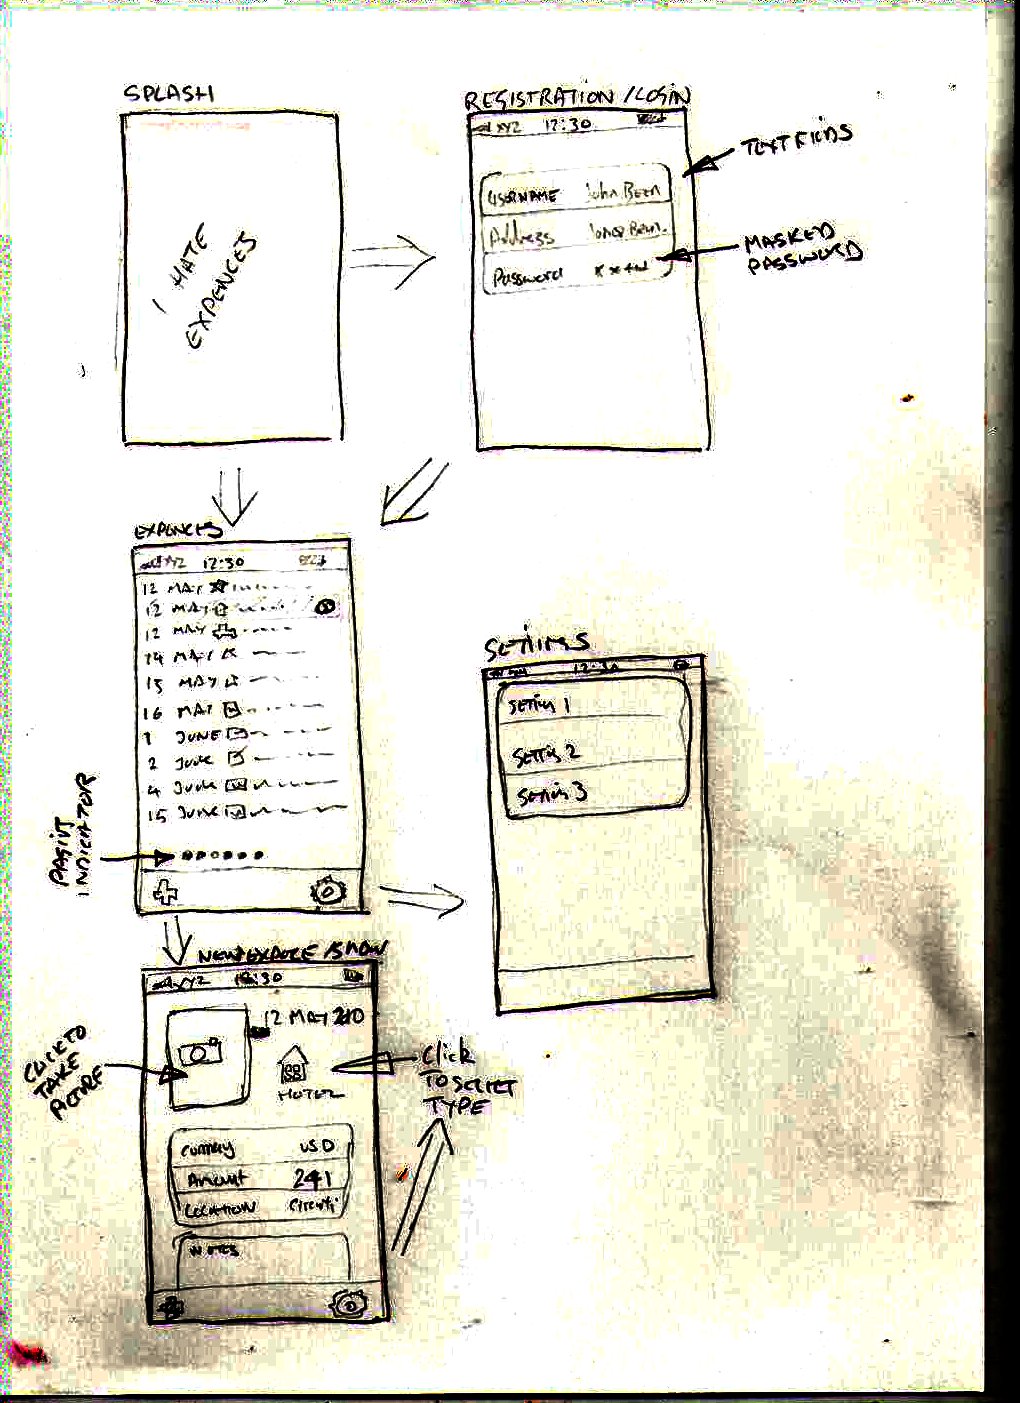 SPLASH
I HATE
EXPENCES
REGISTRATION / LOGIN
XYZ 12:30
USERNAME John Been
Address
Password
MASKED
PASSWORD
EXPENCES
XYZ 12:30
12 MAY
12 MAY
12 MAY
14 MAY
15 MAY
16 MAY
1 JUNE
2 JUNE
4 JUNE
15 JUNE
INDICATOR
SETTINGS
12:30
Setting 1
Setting 2
Setting 3
XYZ 12:30
12 MAY 210
HOTEL
CLICK TO
TAKE
PICTURE
Click
TO SELECT
TYPE
Currency USD
Amount 241
LOCATION
NOTES